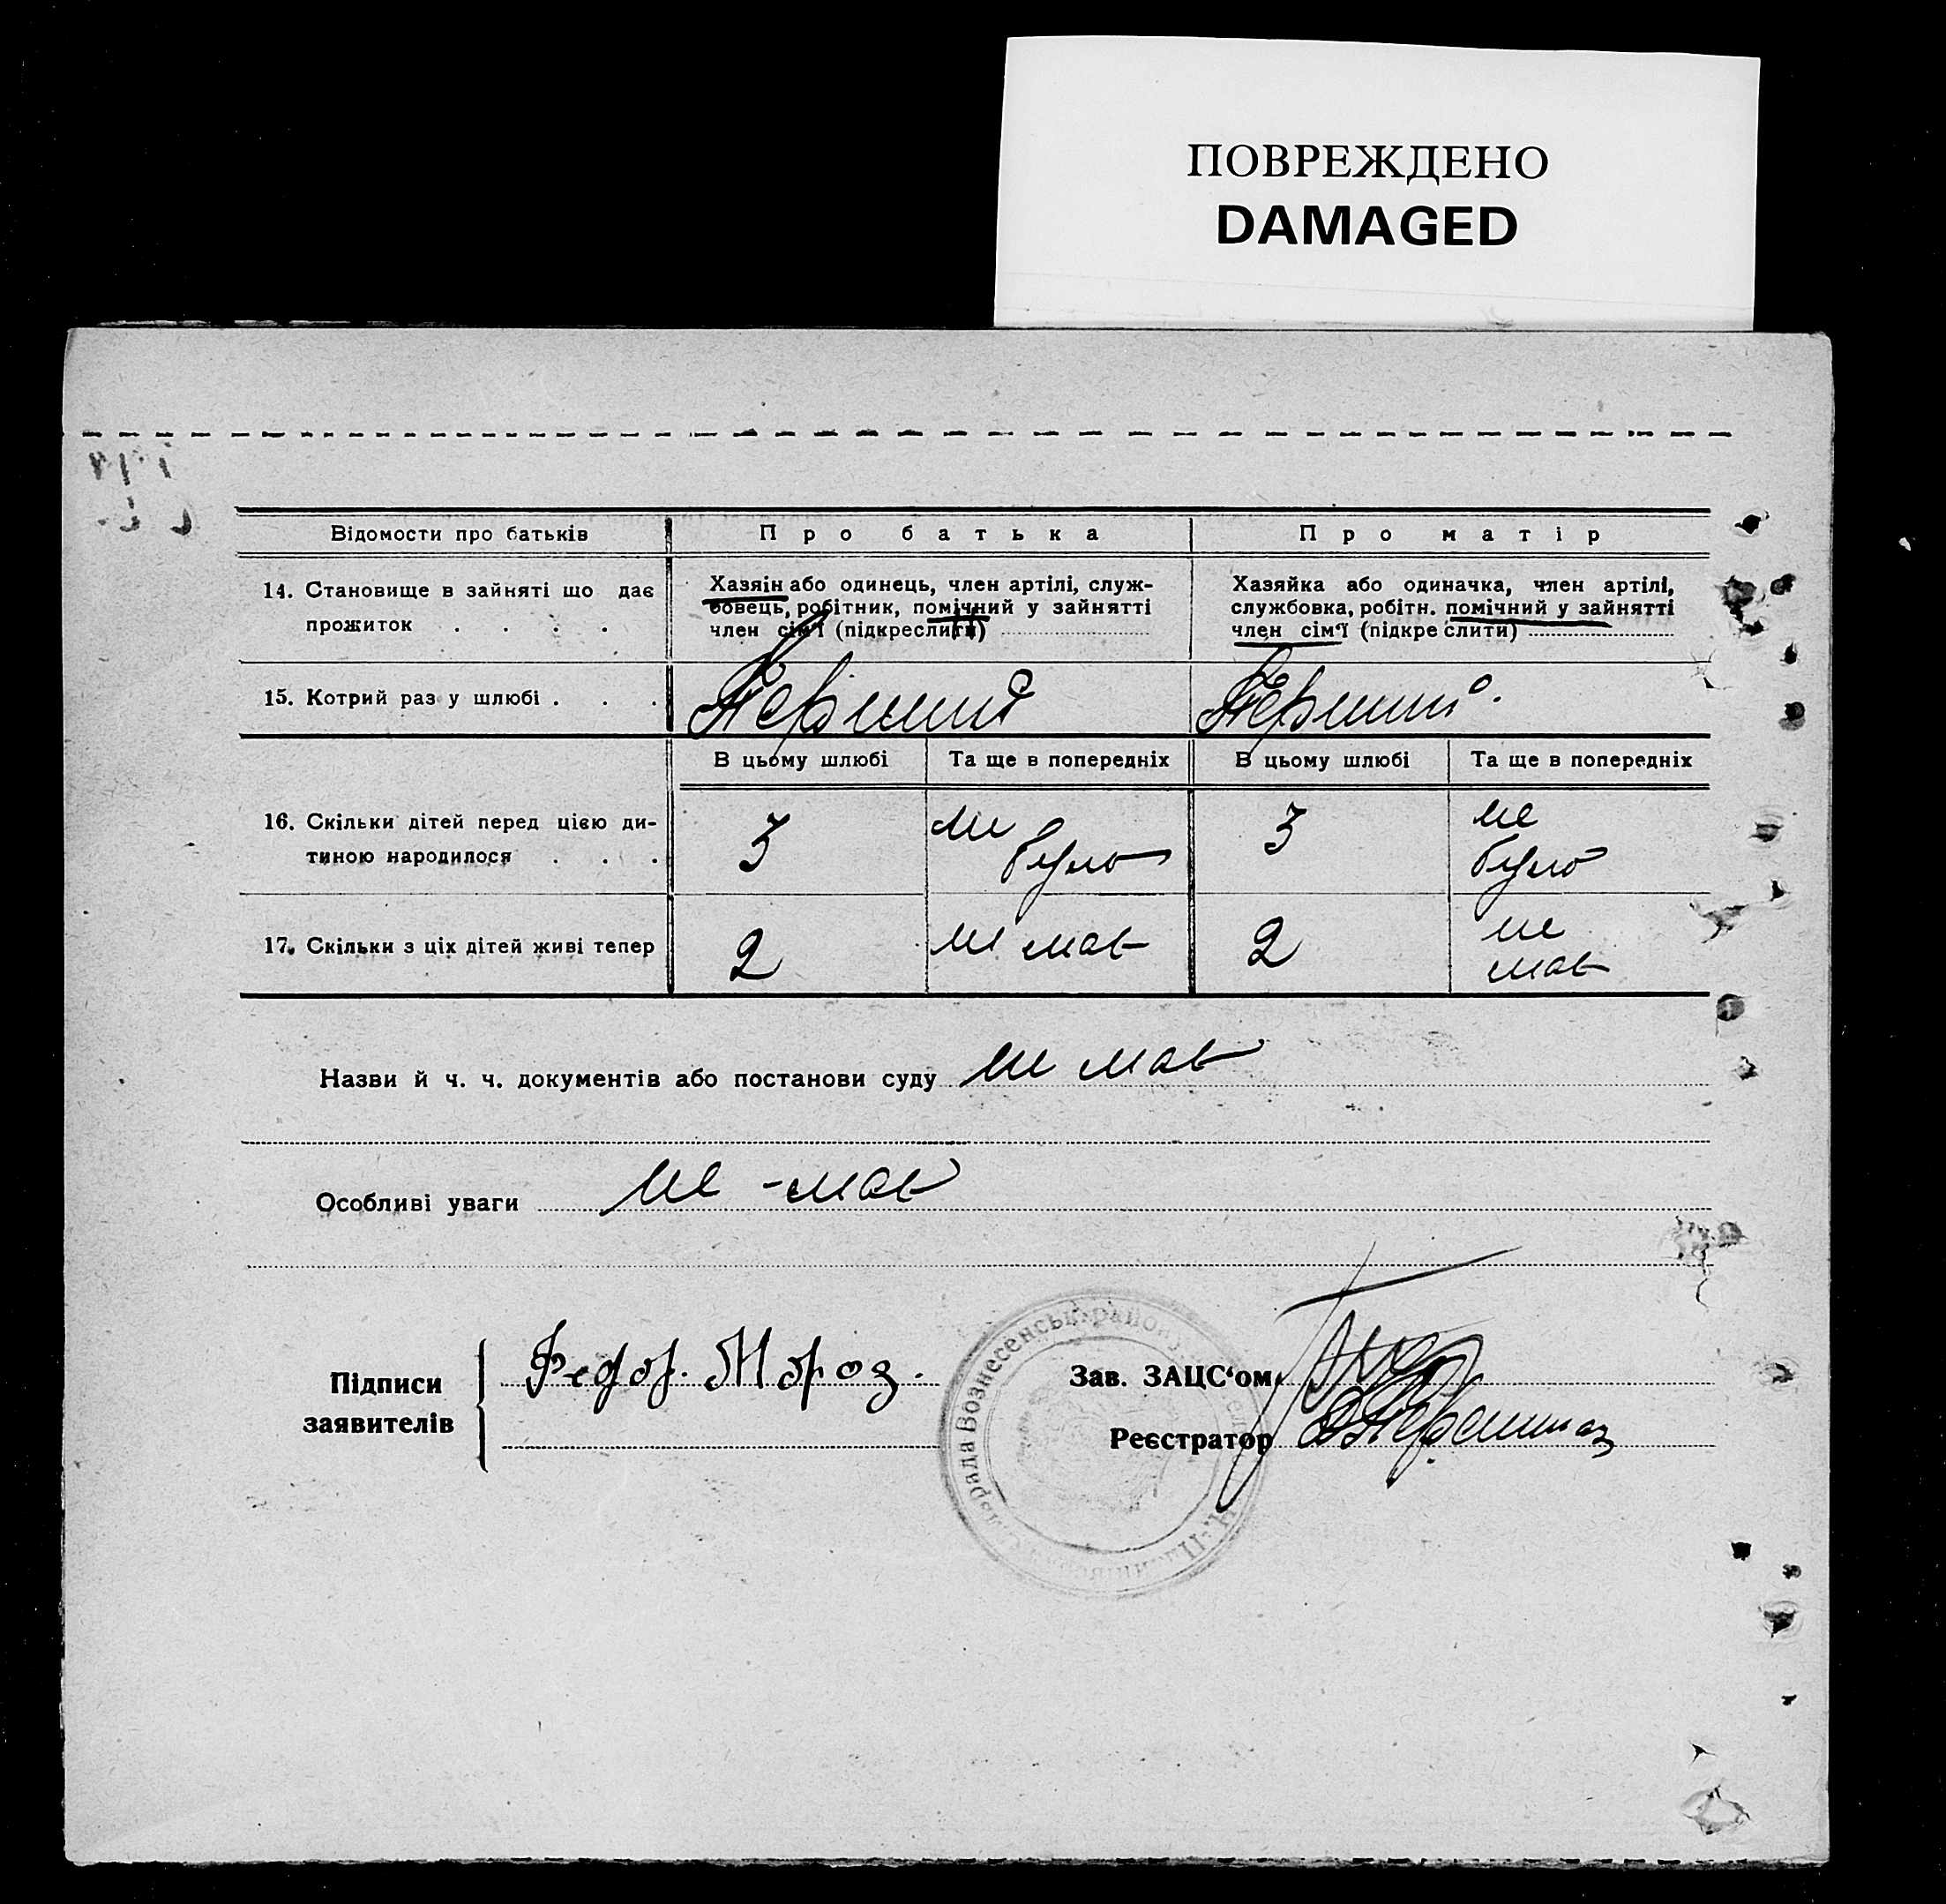 ПОВРЕЖДЕНО
DAMAGED
Відомости про батьків
Про батька
Про матір
14. Становище в зайняті що дає
прожиток . . . .
Хазяін або одинець, член артілі, служ-
бовець, робітник, помічний у зайнятті
член сім'ї (підкреслити)
Хазяйка або одиначка, член артілі,
службовка, робітн. помічний у зайнятті
член сім'ї (підкреслити)
15. Котрий раз у шлюбі . . .
Первший
Первший
В цьому шлюбі
Та ще в попередніх
В цьому шлюбі
Та ще в попередніх
16. Скільки дітей перед цією ди-
тиною народилося . . .
3
не
було
3
не
було
17. Скільки з ціх дітей живі тепер
2
не мав
2
не
мав
Назви й ч. ч. документів або постанови суду не мав
Особливі уваги не - мав
Підписи
заявителів
Федор. Мороз.
Зав. ЗАЦС'ом
Реєстратор
рада Вознесенськ. району